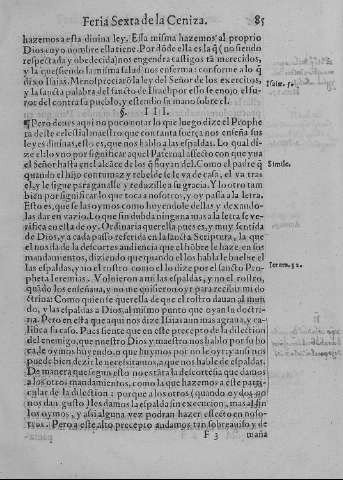 Feria Sexta de la Ceniza. 85
hazemos a esta diuina ley. Essa misma hazemos al proprio
Dios cuyo nombre ella tiene. Por dõde ella es la q̃ (no siendo
respectada y obedecida) nos engendra castigos tã merecidos,
y la que siendo la misma salud nos enferma: conforme a lo q̃
dixo Isaias. Menospreciarõ la ley del Señor de los exercitos,
y la sancta palabra del sancto de Israel: por esso se enojo el fu-
ror del contra su pueblo, y estendio su mano sobre el.
Isaiæ. 5.
§. III.
¶ Pero deues aqui no poco notar lo que luego dize el Prophe
ta deste celestial maestro que con tanta fuerça nos enseña sus
leyes diuinas, esto es, que nos hablo a las espaldas. Lo qual di-
ze el lo vno por significar aquel Paternal affecto con que vsa
el Señor hasta en el alcãce de los q̃ huyan del. Como el padre q̃
quando el hijo contumaz y rebelde se le va de casa, el va tras
el, y le sigue para ganalle y reduzille a su gracia. Y lo otro tam
bien por significar lo que toca a nosotros, y oy passa a la letra.
Simile.
Esto es, que se las oymos como huyendole dellas y dexando-
las dar en vazio. Lo que sin dubda ninguna mas a la letra se ve-
rifica en esta de oy. Ordinaria querella pues es, y muy sentida
de Dios, y a cada passo referida en la sancta Scriptura, la que
el nos da de la descortes audiencia que el hõbre le haze, en sus
mandamientos, diziendo que quando el los habla le buelue el
las espaldas, y no el rostro como el lo dize por el sancto Pro-
pheta Ieremias. Voluieron a mi las espaldas, y no el rostro,
Ierem. 32.
quãdo los enseñaua, y no me quisieron oyr para recibir mi do
ctrina: Como quien se querella de que el rostro dauan al mun
do, y las espaldas a Dios, al mismo punto que oyan su doctri-
na. Pero en esta que aqui nos dize Isaias aun mas agraua, y ca-
lifica su caso. Pues siente que en este precepto de la dilection
del enemigo, que nuestro Dios y maestro nos hablo por su bo
ca, le oymos huyendo, o que huymos por no le oyr; y assi nos
puede bien dezir le necessitamos, a que nos hable de espaldas.
De manera que segun esto no esta en la descortesia que damos
a los otros mandamientos, como la que hazemos a este parti-
cular de la dilection: porque a los otros (quando oydos no
nos dan gusto) les damos la espalda sin execucion, mas al fin
los oymos, y assi alguna vez podran hazer effecto en noso-
tros. Pero a este alto precepto andamos tan sobreauiso y de
F 3 maña